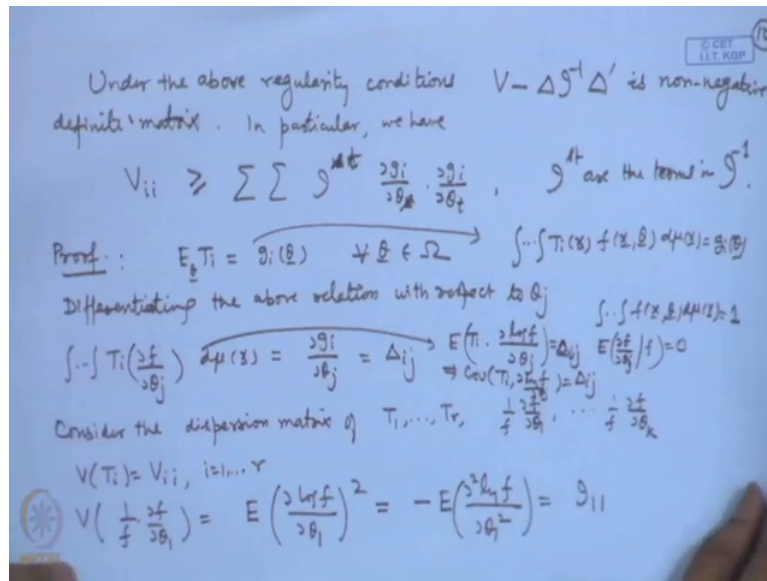 © CET
I.I.T. KGP
Under the above regularity conditions V − Δ 𝓘⁻¹ Δ' is non-negative
definite matrix. In particular, we have
Vᵢᵢ ≥ Σ Σ 𝓘ˢᵗ ∂gᵢ/∂θₛ · ∂gᵢ/∂θₜ , 𝓘ˢᵗ are the terms in 𝓘⁻¹.
Proof: E_θ Tᵢ = gᵢ(θ) ∀ θ ∈ Ω ∫...∫ Tᵢ(x) f(x, θ) dμ(x) = gᵢ(θ)
Differentiating the above relation with respect to θⱼ ∫...∫ f(x, θ) dμ(x) = 1
∫...∫ Tᵢ (∂f/∂θⱼ) dμ(x) = ∂gᵢ/∂θⱼ = Δᵢⱼ E(Tᵢ · ∂log f/∂θⱼ) = Δᵢⱼ E(∂f/∂θⱼ / f) = 0
⇒ Cov(Tᵢ, ∂log f/∂θⱼ) = Δᵢⱼ
Consider the dispersion matrix of T₁, ..., Tᵣ, 1/f ∂f/∂θ₁, ... 1/f ∂f/∂θₖ
V(Tᵢ) = Vᵢᵢ, i=1,... r
V(1/f · ∂f/∂θ₁) = E(∂log f/∂θ₁)² = −E(∂²log f/∂θ₁²) = 𝓘₁₁